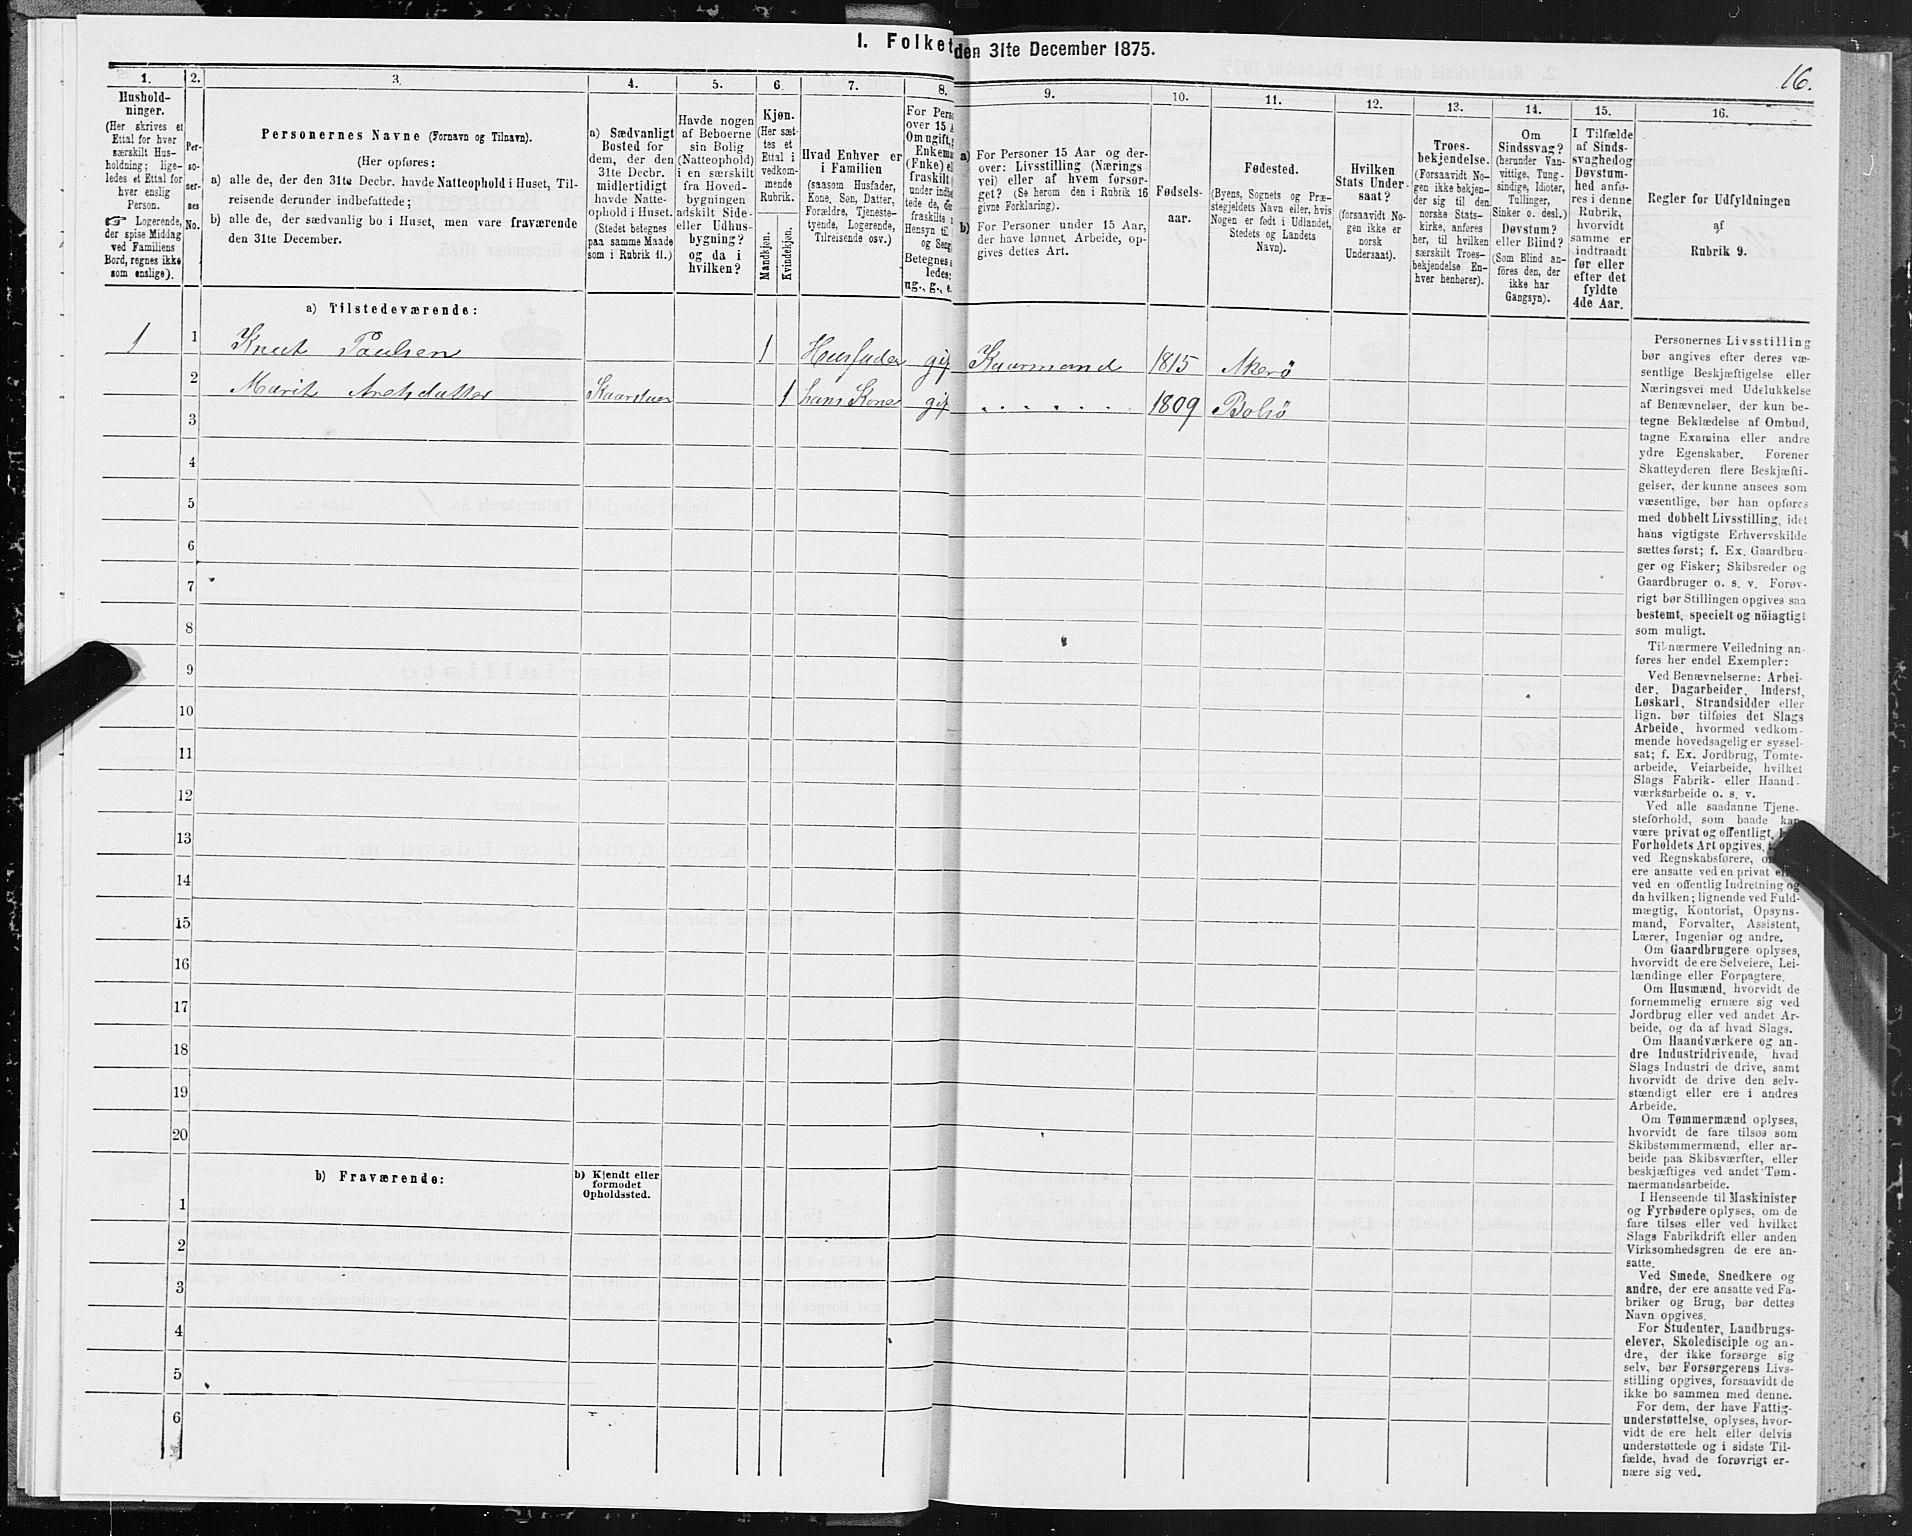 1. Folket
den 31te December 1875.
16.
1.
2.
3.
4.
5.
6.
7.
8.
9.
10.
11.
12.
13.
14.
15.
16.
Hushold-
ninger.
(Her skrives et
Ettal for hver
særskilt Hus-
holdning; lige-
ledes et Ettal for
hver enslig
Person.
☞ Logerende,
der spise Middag
ved Familiens
Bord, regnes ikke
som enslige).
Per-
so-
ner-
nes
No.
Personernes Navne (Fornavn og Tilnavn).
(Her opføres:
a) alle de, der den 31te Decbr. havde Natteophold i Huset, Til-
reisende derunder indbefattede;
b) alle de, der sædvanlig bo i Huset, men vare fraværende
den 31te December.
a) Sædvanligt
Bosted for
dem, der den
31te Decbr.
midlertidigt
havde Natte-
ophold i Huset.
(Stedet betegnes
paa samme Maade
som i Rubrik 11.)
Havde nogen
af Beboerne
sin Bolig
(Natteophold)
i en særskilt
fra Hoved-
bygningen
adskilt Side-
eller Udhus-
bygning?
og da i
hvilken?
Kjøn.
(Her sæt-
tes et
Ettal i
vedkom-
mende
Rubrik.
Mandkjøn.
Kvindekjøn.
Hvad Enhver er
i Familien
(saasom Husfader,
Kone, Søn, Datter,
Forældre, Tjeneste-
tyende, Logerende,
Tilreisende osv.)
For Pers
over 15 A
Om ugift,
Enkem
(Enke) el
fraskilt
under indbe
tede de,
fraskilte
Hensyn til
og Seng
Betegnes
ledes:
ug., g., e.
a) For Personer 15 Aar og der-
over: Livsstilling (Nærings-
vei) eller af hvem forsør-
get? (Se herom den i Rubrik 16
givne Forklaring).
b) For Personer under 15 Aar,
der have lønnet Arbeide, op-
gives dettes Art.
Fødsels-
aar.
Fødested.
(Byens, Sognets og Præ-
stegjeldets Navn eller, hvis
Nogen er født i Udlandet,
Stedets og Landets
Navn).
Hvilken
Stats Under-
saat?
(forsaavidt No-
gen ikke er
norsk
Undersaat).
Troes-
bekjendelse.
(Forsaavidt No-
gen ikke bekjen-
der sig til den
norske Stats-
kirke, anføres
her, til hvilken
særskilt Troes-
bekjendelse En-
hver henhører).
Om
Sindssvag?
(herunder Van-
vittige, Tung-
sindige, Idioter,
Tullinger,
Sinker o. desl.)
Døvstum?
eller Blind?
(Som Blind an-
føres den, der
ikke har
Gangsyn).
I Tilfælde
af Sinds-
svaghed og
Døvstum-
hed anfø-
res i denne
Rubrik,
hvorvidt
samme er
indtraadt
før eller
efter det
fyldte
4de Aar.
Regler for Udfyldningen
af
Rubrik 9.
a) Tilstedeværende:
1 1 Knut Paulsen 1 Husfader gif Kaarmand 1815 Akerø
2 Marit Arntsdatter 1 hans Kone gif . . . . . . 1809 Bolsø
3
4
5
6
7
8
9
10
11
12
13
14
15
16
17
18
19
20
b) Fraværende:
b) Kjendt eller
formodet
Opholdssted.
1
2
3
4
5
6
Personernes Livsstilling
bør angives efter deres væ-
sentlige Beskjæftigelse eller
Næringsvei med Udelukkelse
af Benævnelser, der kun be-
tegne Beklædelse af Ombud,
tagne Examina eller andre
ydre Egenskaber. Forener
Skatteyderen flere Beskjæfti-
gelser, der kunne ansees som
væsentlige, bør han opføres
med dobbelt Livsstilling, idet
hans vigtigste Erhvervskilde
sættes først; f. Ex. Gaardbru-
ger og Fisker; Skibsreder og
Gaardbruger o. s. v. Forøv-
rigt bør Stillingen opgives saa
bestemt, specielt og nöiagtigt
som muligt.
Til nærmere Veiledning an-
føres her endel Exempler:
Ved Benævnelserne: Arbei-
der, Dagarbeider, Inderst,
Løskarl, Strandsidder eller
lign. bør tilføies det Slags
Arbeide, hvormed vedkom-
mende hovedsagelig er syssel-
sat; f. Ex. Jordbrug, Tomte-
arbeide, Veiarbeide, hvilket
Slags Fabrik- eller Haand-
værksarbeide o. s. v.
Ved alle saadanne Tjene-
steforhold, som baade kan
være privat og offentligt,
Forholdets Art opgives,
ved Regnskabsførere,
ere ansatte ved en privat
ved en offentlig Indretning og
da hvilken; lignende ved Fuld-
mægtig, Kontorist, Opsyns-
mand, Forvalter, Assistent,
Lærer, Ingeniør og andre.
Om Gaardbrugere oplyses,
hvorvidt de ere Selveiere, Lei-
lændinge eller Forpagtere.
Om Husmænd, hvorvidt de
fornemmelig ernære sig ved
Jordbrug eller ved andet Ar-
beide, og da af hvad Slags.
Om Haandværkere og an-
dre Industridrivende, hvad
Slags Industri de drive, samt
hvorvidt de drive den selv-
stændigt eller ere i andres
Arbeide.
Om Tømmermænd oplyses,
hvorvidt de fare tilsøs som
Skibstømmermænd, eller ar-
beide paa Skibsværfter, eller
beskjæftiges ved andet Tøm-
mermandsarbeide.
I Henseende til Maskinister
og Fyrbødere oplyses, om de
fare tilsøs eller ved hvilket
Slags Fabrikdrift eller anden
Virksomhedsgren de ere an-
satte.
Ved Smede, Snedkere og
andre, der ere ansatte ved Fa-
briker og Brug, bør dettes
Navn opgives.
For Studenter, Landbrugs-
elever, Skoledisciple og an-
dre, der ikke forsørge sig
selv, bør Forsørgerens Livs-
stilling opgives, forsaavidt de
ikke bo sammen med denne.
For dem, der have Fattig-
understøttelse, oplyses, hvor-
vidt de ere helt eller delvis
understøttede og i sidste Til-
fælde, hvad de forøvrigt er-
nære sig ved.